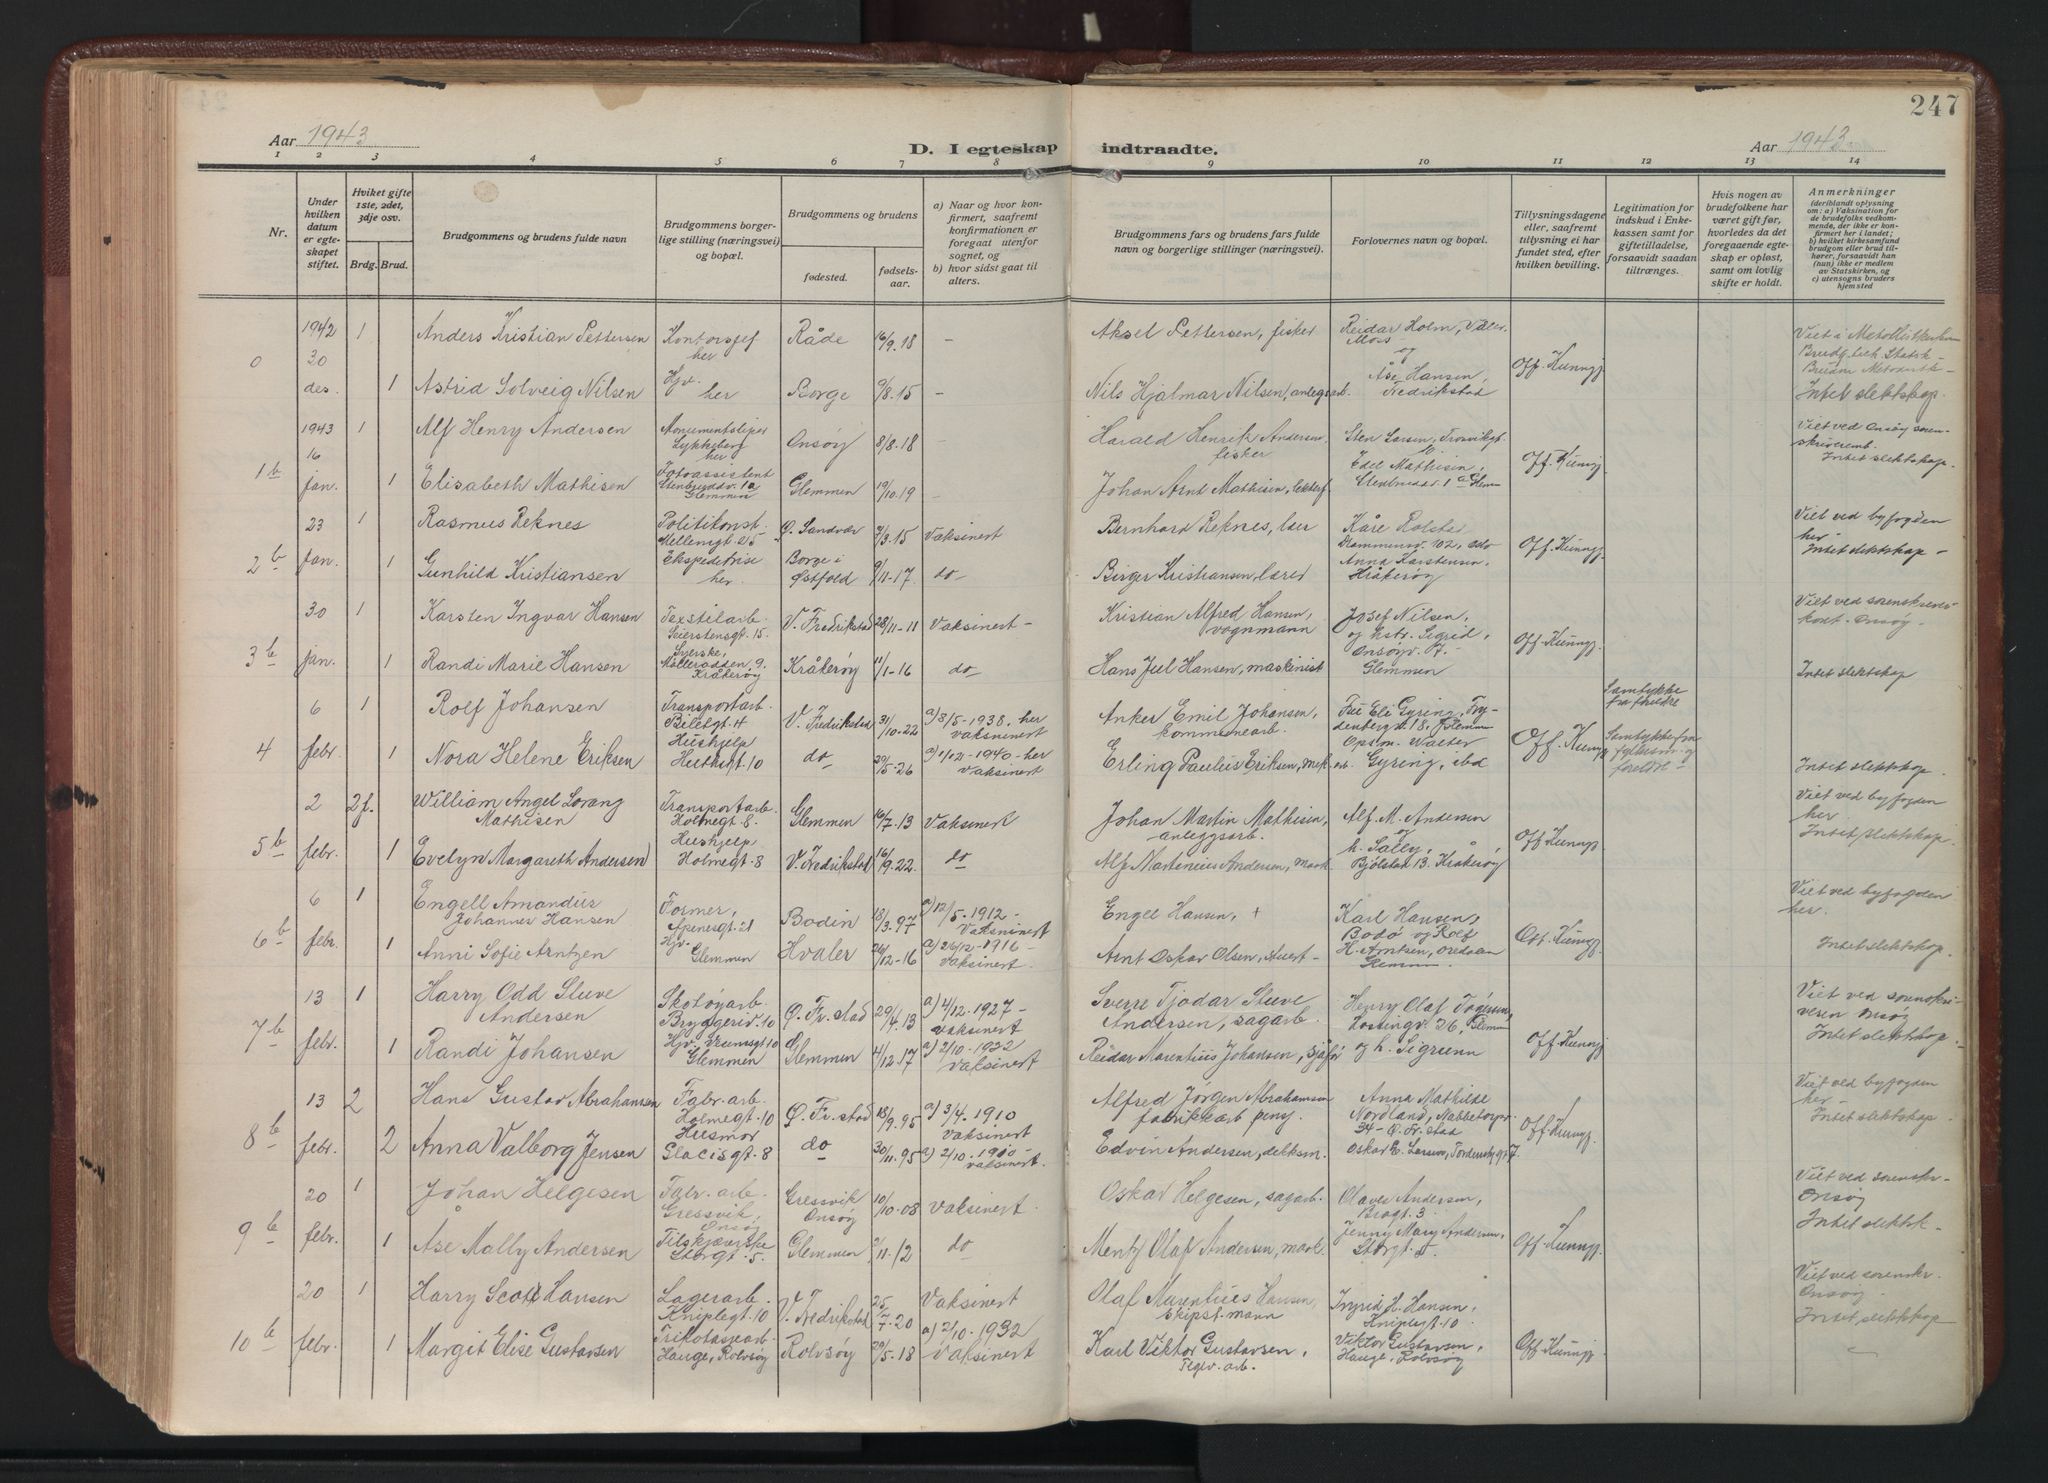 247
Aar 1943
D. I egteskap indtraadte.
Aar 1943
1 2 3 4 5 6 7 8 9 10 11 12 13 14
Nr.
Under hvilken datum er egteskapet stiftet.
Hviket gifte 1ste, 2det, 3dje osv.
Brdg. Brud.
Brudgommens og brudens fulde navn
Brudgommens borgerlige stilling (næringsvei) og bopæl.
Brudgommens og brudens
fødested. fødselsaar.
a) Naar og hvor konfirmert, saafremt konfirmationen er foregaat utenfor sognet, og
b) hvor sidst gaat til alters.
Brudgommens fars og brudens fars fulde navn og borgerlige stillinger (næringsvei).
Forlovernes navn og bopæl.
Tillysningsdagene eller, saafremt tillysning ei har fundet sted, efter hvilken bevilling.
Legitimation for indskud i Enkekassen samt for giftetilladelse, forsaavidt saadan tiltrænges.
Hvis nogen av brudefolkene har været gift før, hvorledes da det foregaaende egteskap er opløst, samt om lovlig skifte er holdt.
Anmerkninger
(deriblandt oplysning om: a) Vaksination for de brudefolks vedkommende, der ikke er konfirmert her i landet; b) hvilket kirkesamfund brudgom eller brud tilhører, forsaavidt han (hun) ikke er medlem av Statskirken, og c) utensogns bruders hjemsted
0 1942 30 des.
1 Anders Kristian Pettersen Kontorsjef her Råde 16/9.18 – Aksel Pettersen, fisker Reidar Holm, Våler Moss og
1 Astrid Solveig Nilsen Hjv. her Borge 9/8.15 – Nils Hjalmar Nilsen, anlegsarb. Åse Hansen, Fredrikstad Off. Kunngj.
Intet slektskap.
1b 1943 16 jan.
1 Alf Henry Andersen Lykkeberg her Onsøy 8/8.18 Harald Henrik Andersen fisker Sten Larsen, Trosvikgt.
1 Elisabeth Mathisen Fotoassistent Glemmen Glemmen 19/10.19 – Johan Arnt Mathisen Edel Mathisen, Off. Kunngj.
Viet ved Onsøy sorenskriveremb. Intet slektskap.
2b 23 Jan.
1 Rasmus Reknes Politikonst. Mellemgt. 25 Ø. Sandvær 7/3.15 Vaksinert Bernhard Reknes, lær Kåre Rolstø
1 Gunhild Kristiansen Ekspeditrise her. Borge i Østfold 9/11-17. do – Birger Kristiansen, lærer Anna Karstensen, Kråkerøy Off. Kunngj.
Viet ved byfogden her – Intet slektskap –
3b 30 jan.
1 Karsten Ingvar Hansen Textilarb. Seierstensgt. 15. V. Fredrikstad 28/11-11 Vaksinert – Kristian Alfred Hansen, vognmann Josef Nilsen,
1 Randi Marie Hansen Syerske, Møllerodden 9. Kråkerøy Kråkerøy 11/1-16 do Hans Juel Hansen, maskinist og hstr. Sigrid, Onsøyv. 7. – Glemmen Off. Kunngj.
Intet slektskap
4 6 febr.
1 Rolf Johansen Transportarb. Bilelgt. 4 V. Fredrikstad 31/10-22 a) 8/5-1938, her Vaksinert Anker Emil Johansen, kommunearb. Samtykke fra foreldre
1 Nora Helene Eriksen Hushjelp do 29/5-26 a) 1/12-1940 – her Vaksinert Erling Paulus Eriksen, mek. arb. Opsm. Walter Gyring, ibd Off. Kunngj.
Intet slektskap.
5b 2 febr.
2f. William Angel Lorang Mathisen Transportarb. Holmegt. 8. Glemmen 16/7.13 Vaksinert Johan Martin Mathisen, anleggsarb. Alf. M. Andersen
1 Evelyn Margareth Andersen Hushjelp Holmegt. 8 V. Fredrikstad 16/9.22. do Alf Martenius Andersen, mask. h. Sally, Bjølstad 13. Kråkerøy Off Kunngj.
Viet ved byfogden her. Intet slektskap
6b 6 febr.
1 Engell Amandus Johannes Hansen Former, Apenesgt. 21 Bodin 18/3.97 a) 12/5-1912 – Vaksinert Engel Hansen, + Karl Hansen, Bodø og Rolf
1 Anni Sofie Arntzen Hjv. Glemmen Hvaler 26/12-16 a) 26/12-1916 – Vaksinert. Arnt Oskar Olsen, stuert – H. Arntsen, Off. Kunngj.
Viet ved byfogden her. Intet slektskap.
7b 13 febr.
1 Harry Odd Stuve Andersen Skotøyarb. Bryggeriv. 10 Ø. Fr.stad 29/4.13 a) 4/12. 1927 – Vaksinert Sverre Tjodar Stuve Andersen, sagarb. Henry Olaf
1 Randi Johansen Hjv. Glemmen Glemmen 4/12.17 a) 2/10-1932 Vaksinert Reidar Marentius Johansen, sjåfør og h. Sigrunn Off. Kunngj.
Viet ved sorenskriveren Onsøy Intet slektskap.
8b 13 febr.
2 Hans Gustav Abrahamsen Fabr. arb. Holmegt. 10 Ø. Fr. stad 18/9.95 a) 3/4. 1910 Vaksinert Alfred Jørgen Abrahamsen fabrikkarb. pensj. Anna Mathilde Nordland, Nabbetorpv. 34 – Ø. Fr. stad
2 Anna Valborg Jensen Husmor Glacisgt. 8 do 30/11.95 a) 2/10.-1910 – Vaksinert. Edvin Andersen, Oskar E. Larsen, Off. Kunngj.
Viet ved byfogden her – Intet slektskap
9b 20 febr.
1 Johan Helgesen Fabr. arb. Gressvik, Onsøy Gressvik Onsøy 10/10-08 Vaksinert. Oskar Helgesen, sagarb. Olaver Andersen, Bragt. 3.
1 Åse Mally Andersen Tilskjærerske Storgt. 5. Glemmen 9/11.12 do Mentz Olaf Andersen, mask. Jenny Mary Andersen, Storgt. 5. Off. Kunngj.
Viet ved sorenskr. Onsøy Intet slektsk.
10b 20 febr.
1 Harry Scott Hansen Lagerarb. Kniplegt. 10 V. Fredrikstad 25/7-20 Vaksinert Olaf Marentius Hansen, Ekspt. mann Ingrid H. Hansen, Kniplegt. 10.
1 Margit Elise Gustavsen Trikotasjearb. Hauge, Rolvsøy Rolvsøy 29/5.18 a) 2/10. 1932 Vaksinert Karl Viktor Gustavsen, Teglv. arb. Viktor Gustavsen, Hauge, Rolvsøy Off. Kunngj.
Viet ved sorenskr. Onsøy. Intet slektskap